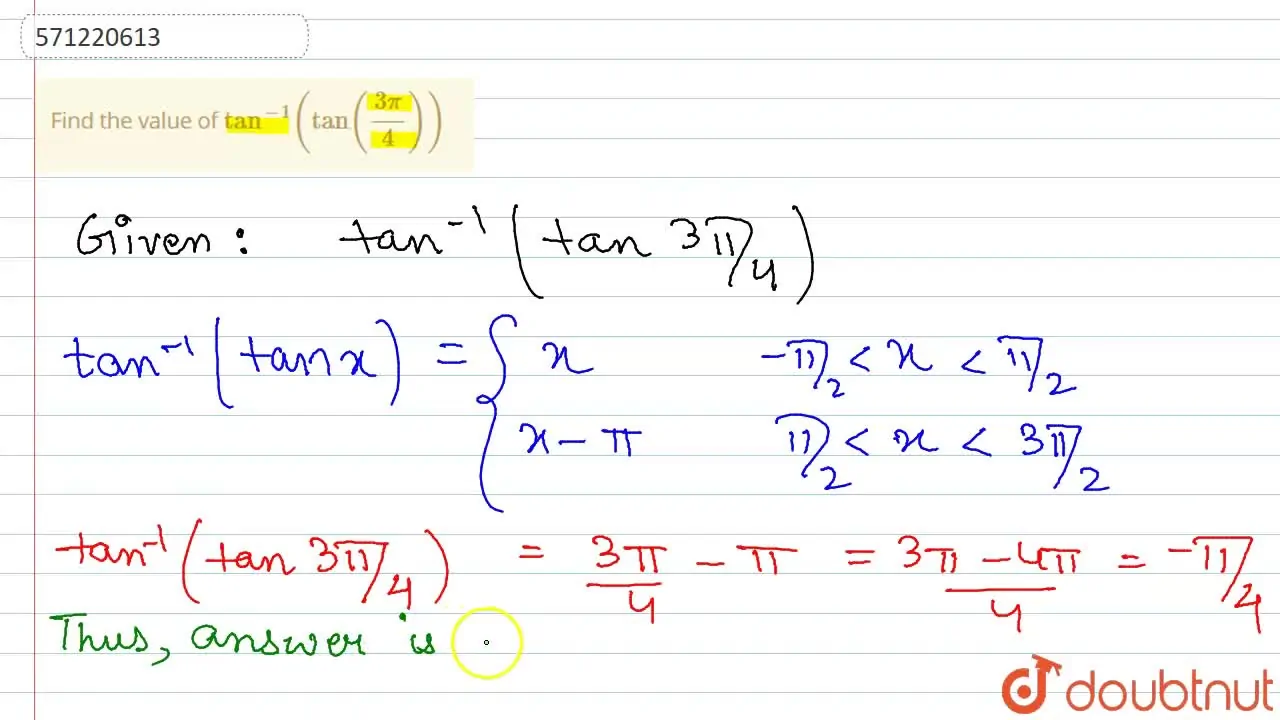 571220613
Find the value of tan⁻¹(tan(3π/4))
Given: tan⁻¹(tan 3π/4)
tan⁻¹(tan x) = { x   -π/2 < x < π/2
x - π   π/2 < x < 3π/2
tan⁻¹(tan 3π/4) = 3π/4 - π = (3π - 4π)/4 = -π/4
Thus, answer is
doubtnut